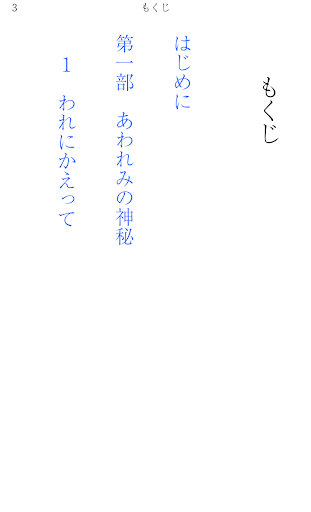 3
もくじ
もくじ
はじめに
第一部　あわれみの神秘
1　われにかえって